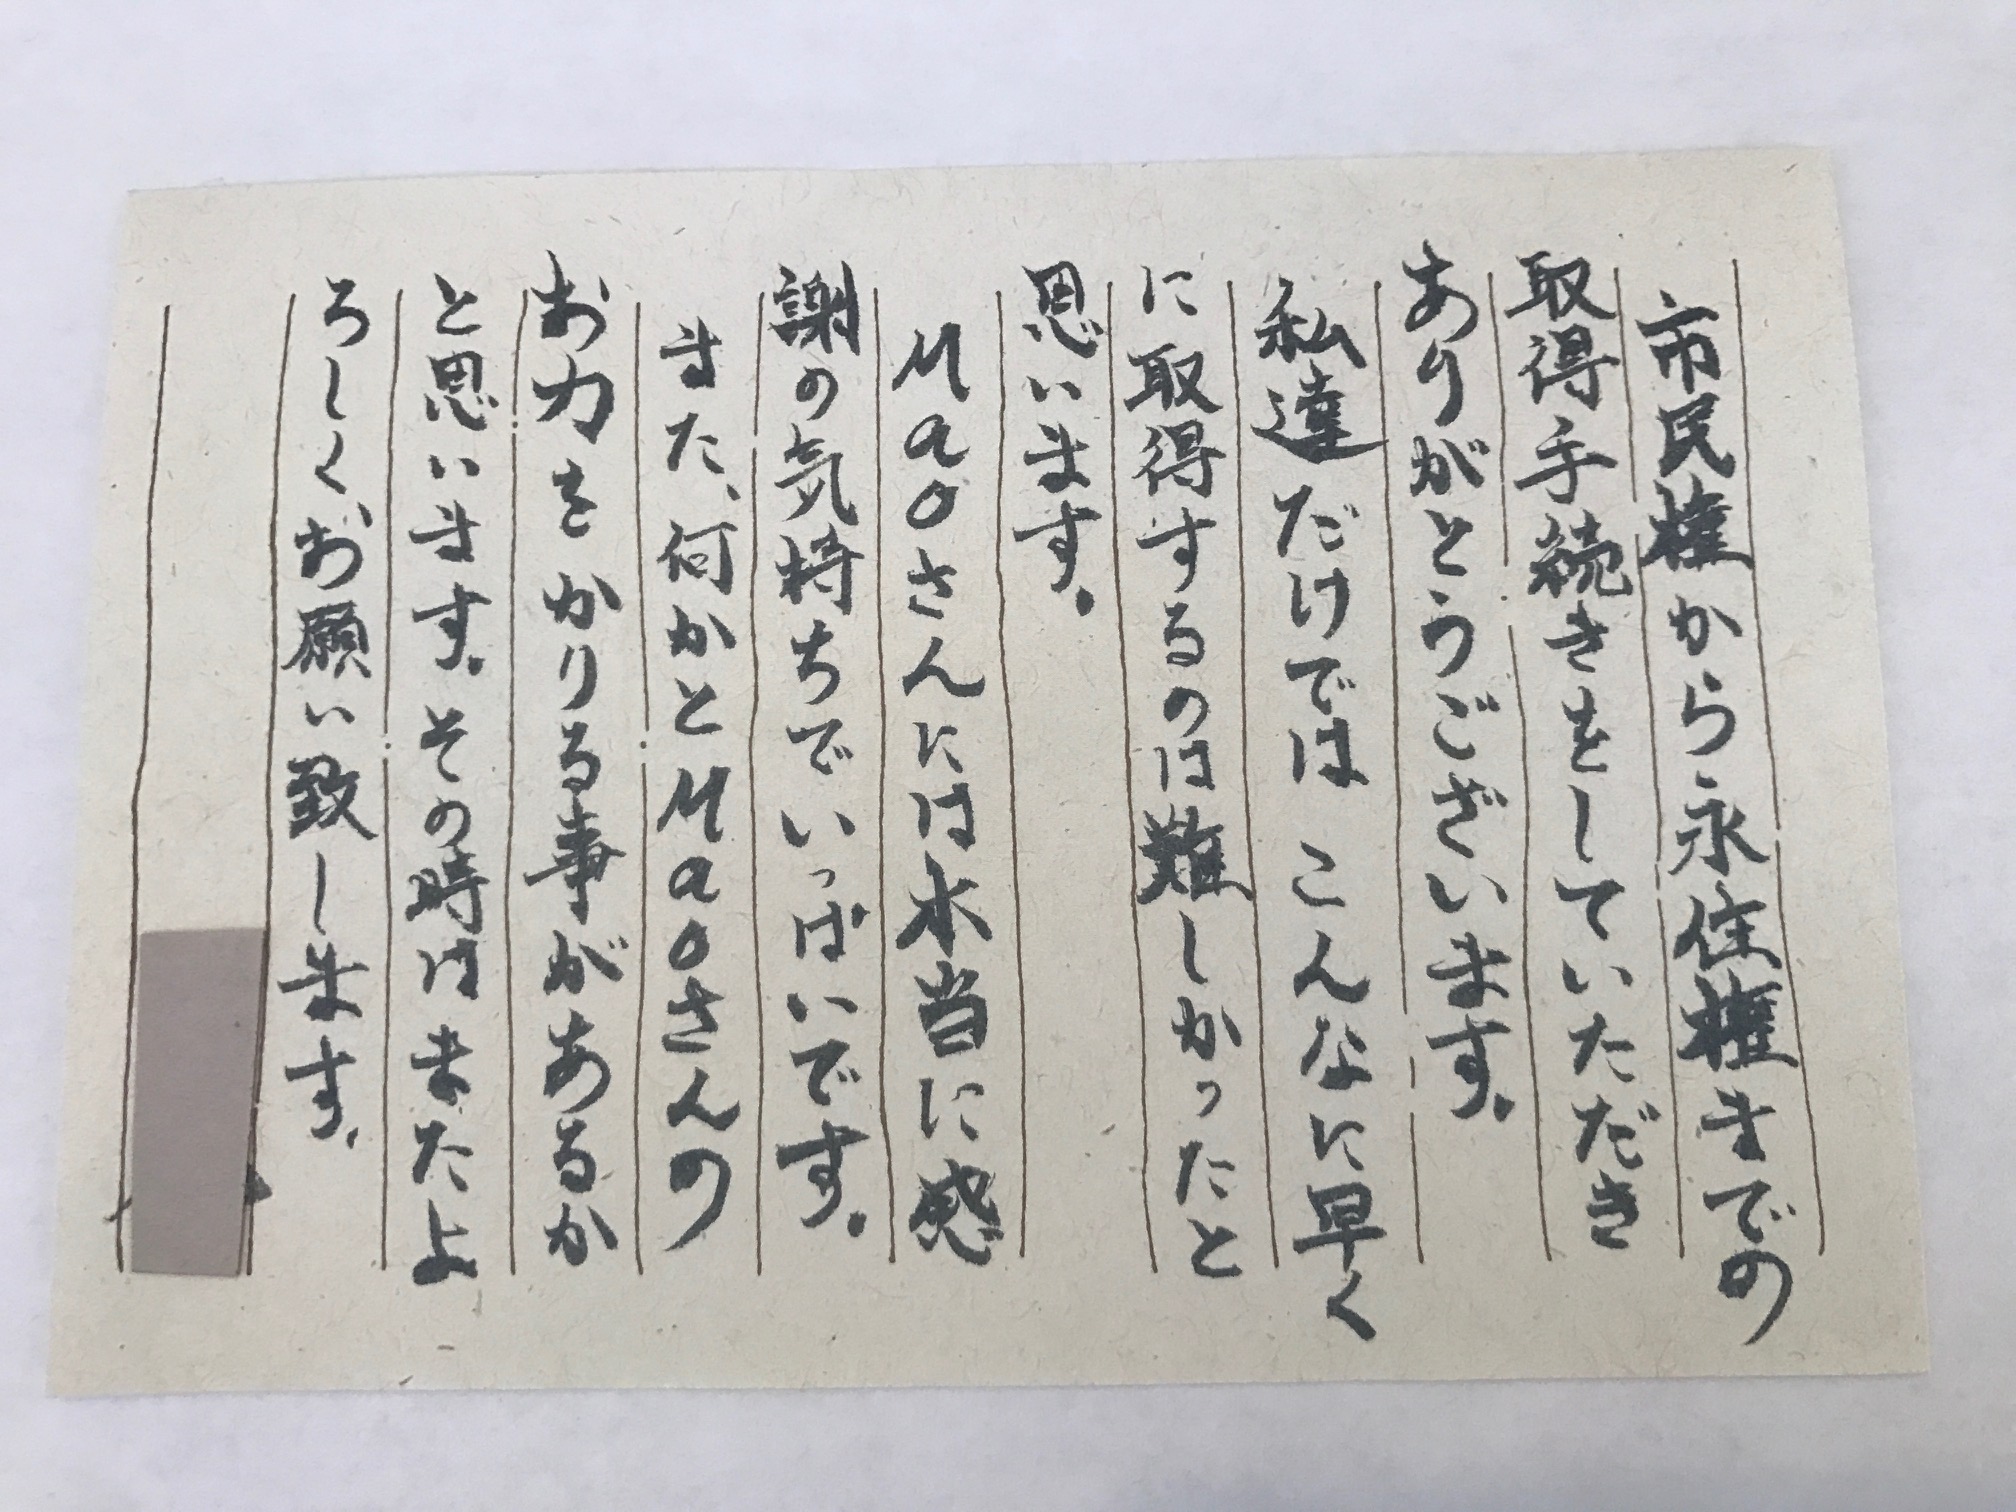 市民権から永住権までの
取得手続きをしていただき
ありがとうございます。
私達だけでは こんなに早く
に取得するのは難しかったと
思います。
Maoさんには本当に感
謝の気持ちでいっぱいです。
また、何かとMaoさんの
お力をかりる事があるか
と思います。その時はまたよ
ろしく、お願い致します。